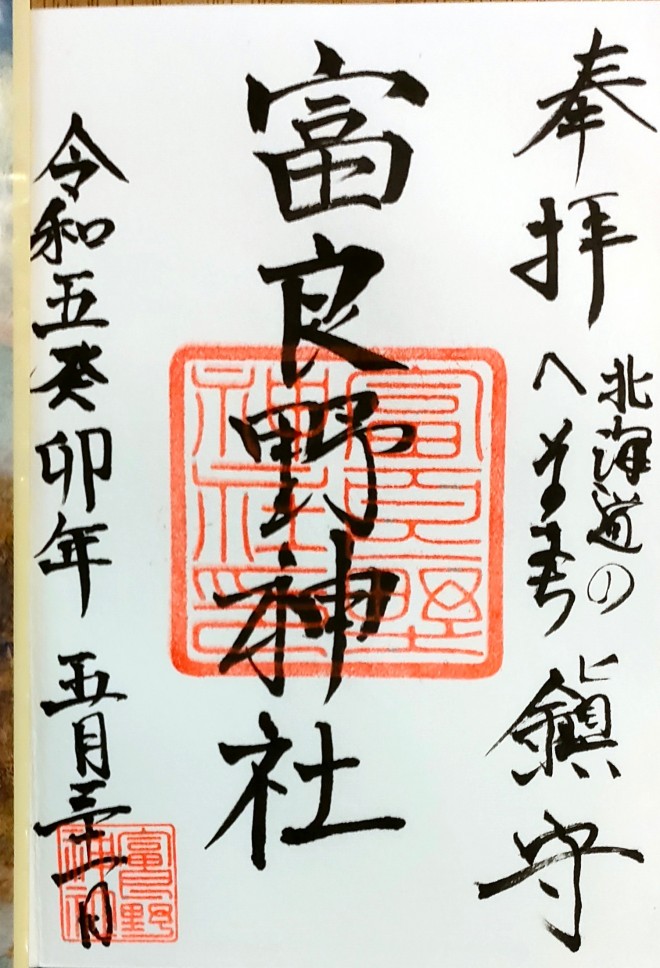 奉拝
北海道の
鎭守
富良野神社
富良野
神社印
令和五癸卯年 五月三十一日
富良野
神社